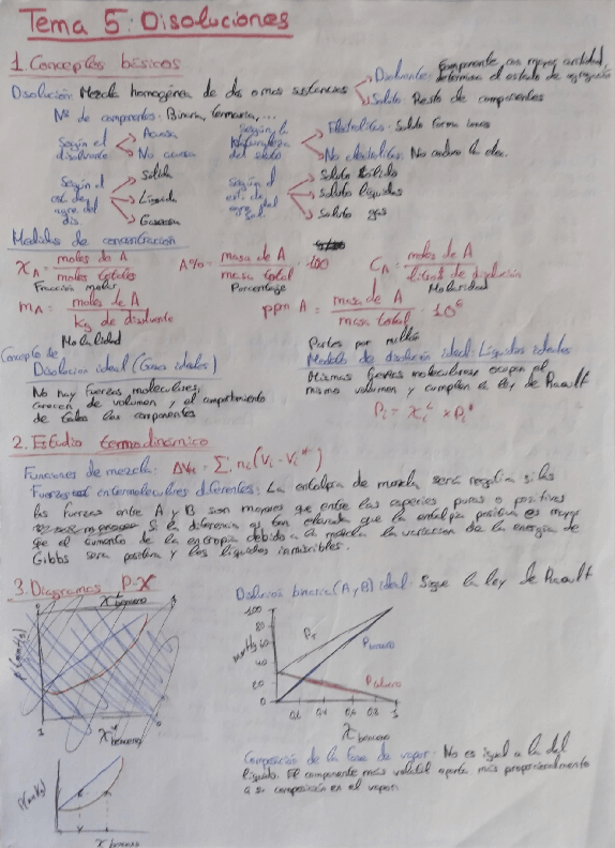 Tema 5: Disoluciones
1. Conceptos básicos
Disolución: Mezcla homogénea de dos o mas sustancias
Disolvente: Componente en mayor cantidad,
determina el estado de agregación
Soluto: Resto de componentes
Nº de componentes: Binaria, ternaria, ...
Según el disolvente
Acuosa
No acuosa
Según la Naturaleza del soluto
Electrolitos: Soluto forma iones
No electrolitos: No conduce la elec.
Según el est. de agre. del dis.
Sólida
Líquida
Gaseosa
Según el est. de agre. del sol.
Soluto sólido
Soluto líquidos
Soluto gas
Medidas de concentración
χA = moles de A / moles totales
Fracción molar
A% = masa de A / masa total · 100
Porcentage
CA = moles de A / litros de disolución
Molaridad
mA = moles de A / kg de disolvente
Molalidad
ppm A = masa de A / masa total · 10⁶
Partes por millón
Concepto de
Disolución ideal (Gases ideales)
No hay fuerzas moleculares,
carecen de volumen y el comportamiento
de todos los componentes
Modelo de disolución ideal: Líquidos ideales
Mismas fuerzas moleculares ocupan el
mismo volumen y cumplen la ley de Raoult
Pi = χiᴸ × Pi*
2. Estudio termodinámico
Funciones de mezcla: ΔVM = Σ ni(Vi - Vi*)
Fuerzas intermoleculares diferentes: La entalpia de mezcla será negativa si las
las fuerzas entre A y B son mayores que entre las especies puras o positivas
Si la diferencia es tan elevada que la entalpia positiva es mayor
que el aumento de la entropia debido a la mezcla la variación de la energia de
Gibbs sera positiva y los líquidos inmiscibles.
3. Diagramas P-X
Disolución binaria (A y B) ideal: Sigue la ley de Raoult
P(mmHg)
X benceno
X benceno
100
80
mmHg 60
40
20
0
PT
P benceno
P tolueno
0.2 0.4 0.6 0.8 1
χ benceno
Composición de la fase de vapor: No es igual a la del
líquido. El componente más volatil aporta más proporcionalmente
a su composición en el vapor.
P(mmHg)
X benceno